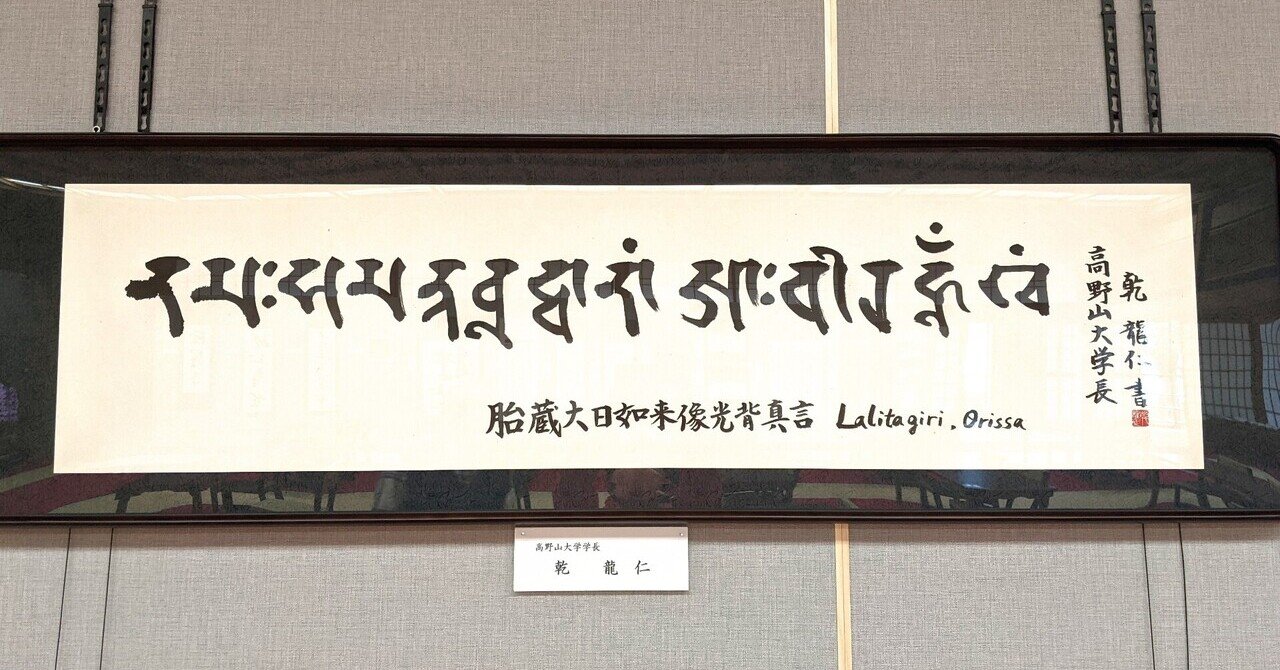 𑖡𑖦𑖾𑖭𑖦𑖡𑖿𑖝𑖤𑖲𑖟𑖿𑖠𑖯𑖡𑖯𑖽 𑖁𑖾𑖪𑖱𑖨𑖮𑖳𑖼𑖏𑖽
胎蔵大日如来像光背真言 Lalitagiri, Orissa
高野山大学長
乾 龍仁書
高野山大学学長
乾 龍仁